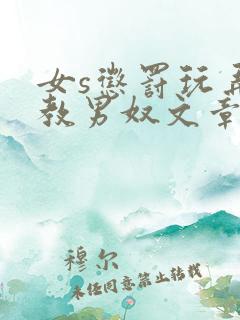 女s惩罚玩弄
教男奴文章
穆尔
未任同意禁止转载